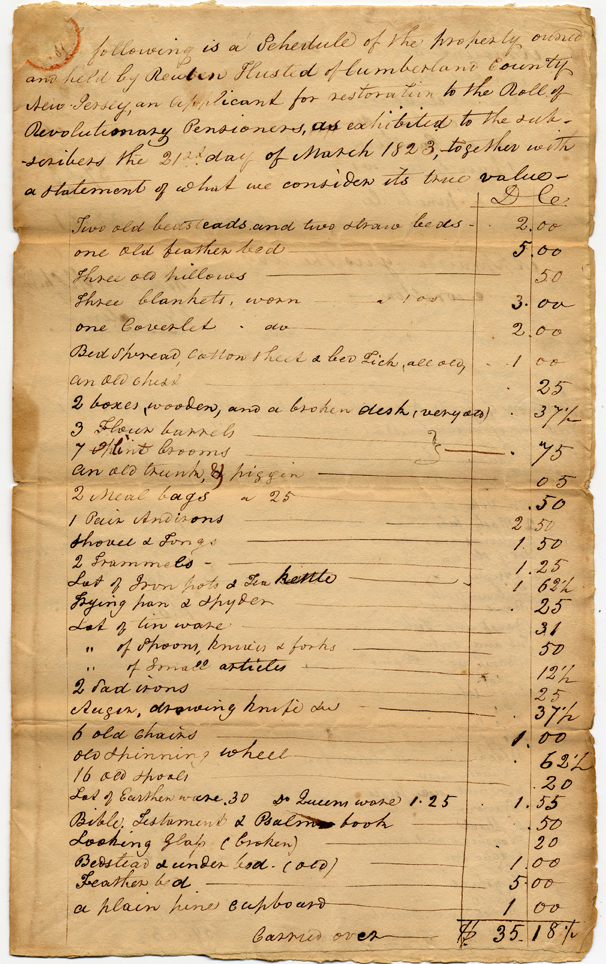 following is a Schedule of the property owned
and held by Reuben Husted of Cumberland County
New Jersey, an applicant for restoration to the Roll of
Revolutionary Pensioners, as exhibited to the sub-
-scribers the 21st day of March 1823, together with
a statement of what we consider its true value -
D C
Two old bedsteads, and two straw beds - 2.00
one old feather bed 5.00
Three old pillows 50
Three blankets, worn a 1 00 3.00
one Coverlet - do 2.00
Bed Spread, Cotton Sheet & bed Tick, all old, 1 00
an old chest 25
2 boxes, wooden, and a broken desk (very old) 37½
3 Flour barrels
7 Splint brooms 75
an old trunk, & piggin 05
2 Meal bags a 25 .50
1 Pair Andirons 2 50
Shovel & Tongs 1.50
2 Trammels - 1.25
Lot of Iron pots & Tea kettle 1 62½
Frying pan & Spyder 25
Lot of tin ware 31
" of Spoons, knives & forks 50
" of Small articles 12½
2 Sad irons 25
Auger, drawing knife &c 37½
6 old Chairs 1.00
old Spinning wheel 62½
16 old Spools .20
Lot of Earthen ware .30 do Queens ware 1.25 1.55
Bible, Testament & Psalm book .50
Looking Glass (broken) 20
Bedstead & under bed. (old) 1.00
Feather bed 5.00
a plain pine Cupboard 1 00
Carried over $ 35.18½